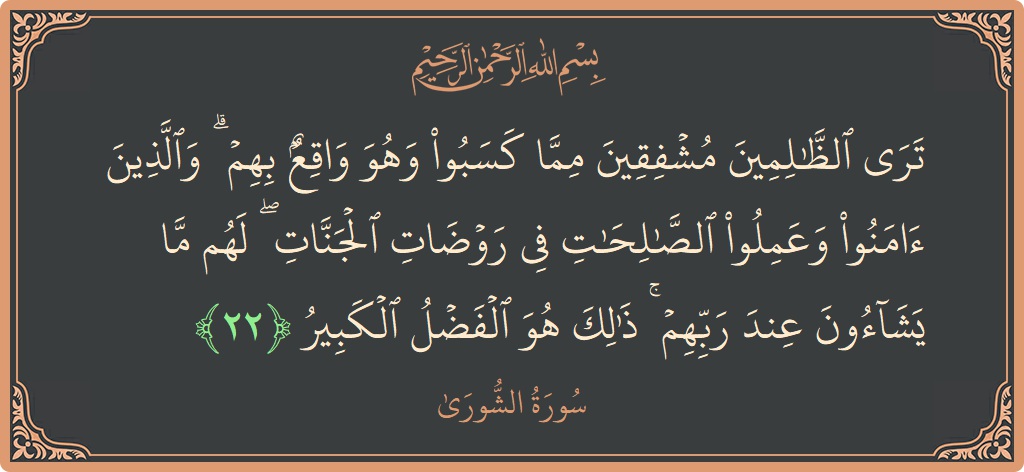 بِسْمِ اللَّهِ الرَّحْمَٰنِ الرَّحِيمِ
تَرَى ٱلظَّـٰلِمِينَ مُشْفِقِينَ مِمَّا كَسَبُوا۟ وَهُوَ وَاقِعٌۢ بِهِمْ ۗ وَٱلَّذِينَ
ءَامَنُوا۟ وَعَمِلُوا۟ ٱلصَّـٰلِحَـٰتِ فِى رَوْضَاتِ ٱلْجَنَّاتِ ۖ لَهُم مَّا
يَشَآءُونَ عِندَ رَبِّهِمْ ۚ ذَٰلِكَ هُوَ ٱلْفَضْلُ ٱلْكَبِيرُ ﴿٢٢﴾
سُورَةُ الشُّورَىٰ